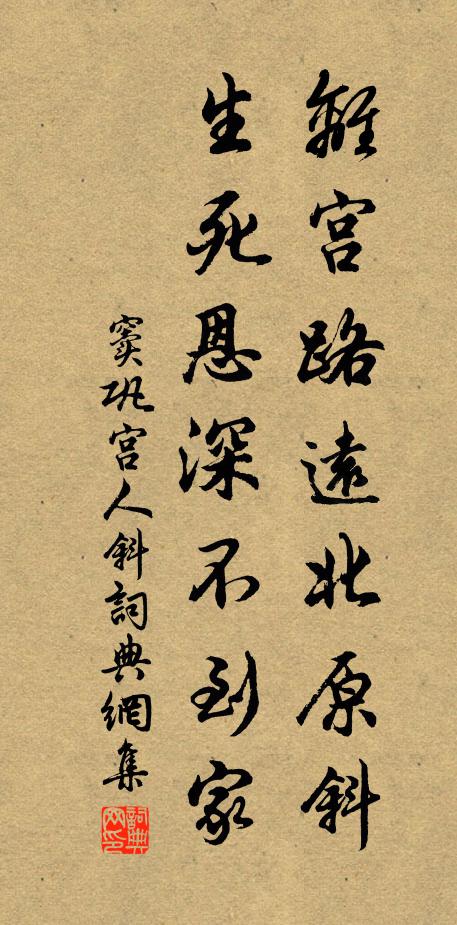 離宮路遠北原斜
生死恩深不到家
竇巩宮人斜詞典網集
詞典網印